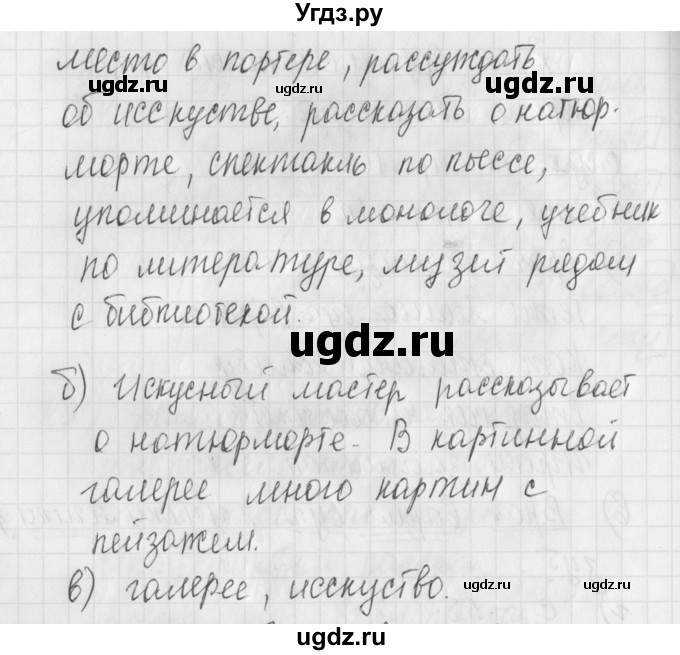 Угдз.ру
место в портере, рассуждать
ugdz.ru ugdz.ru ugdz.ru
об исскустве, рассказать о натюр-
морте, спектакль по пьессе,
упоминается в монологе, учебник
по литературе, музей рядом
с библиотекой.
ugdz.ru
б) Искусный мастер рассказывает
о натюрморте. В картинной
галерее много картин с
пейзажем.
в) галерее, исскуство.
ugdz.ru ugdz.ru
ugdz.ru